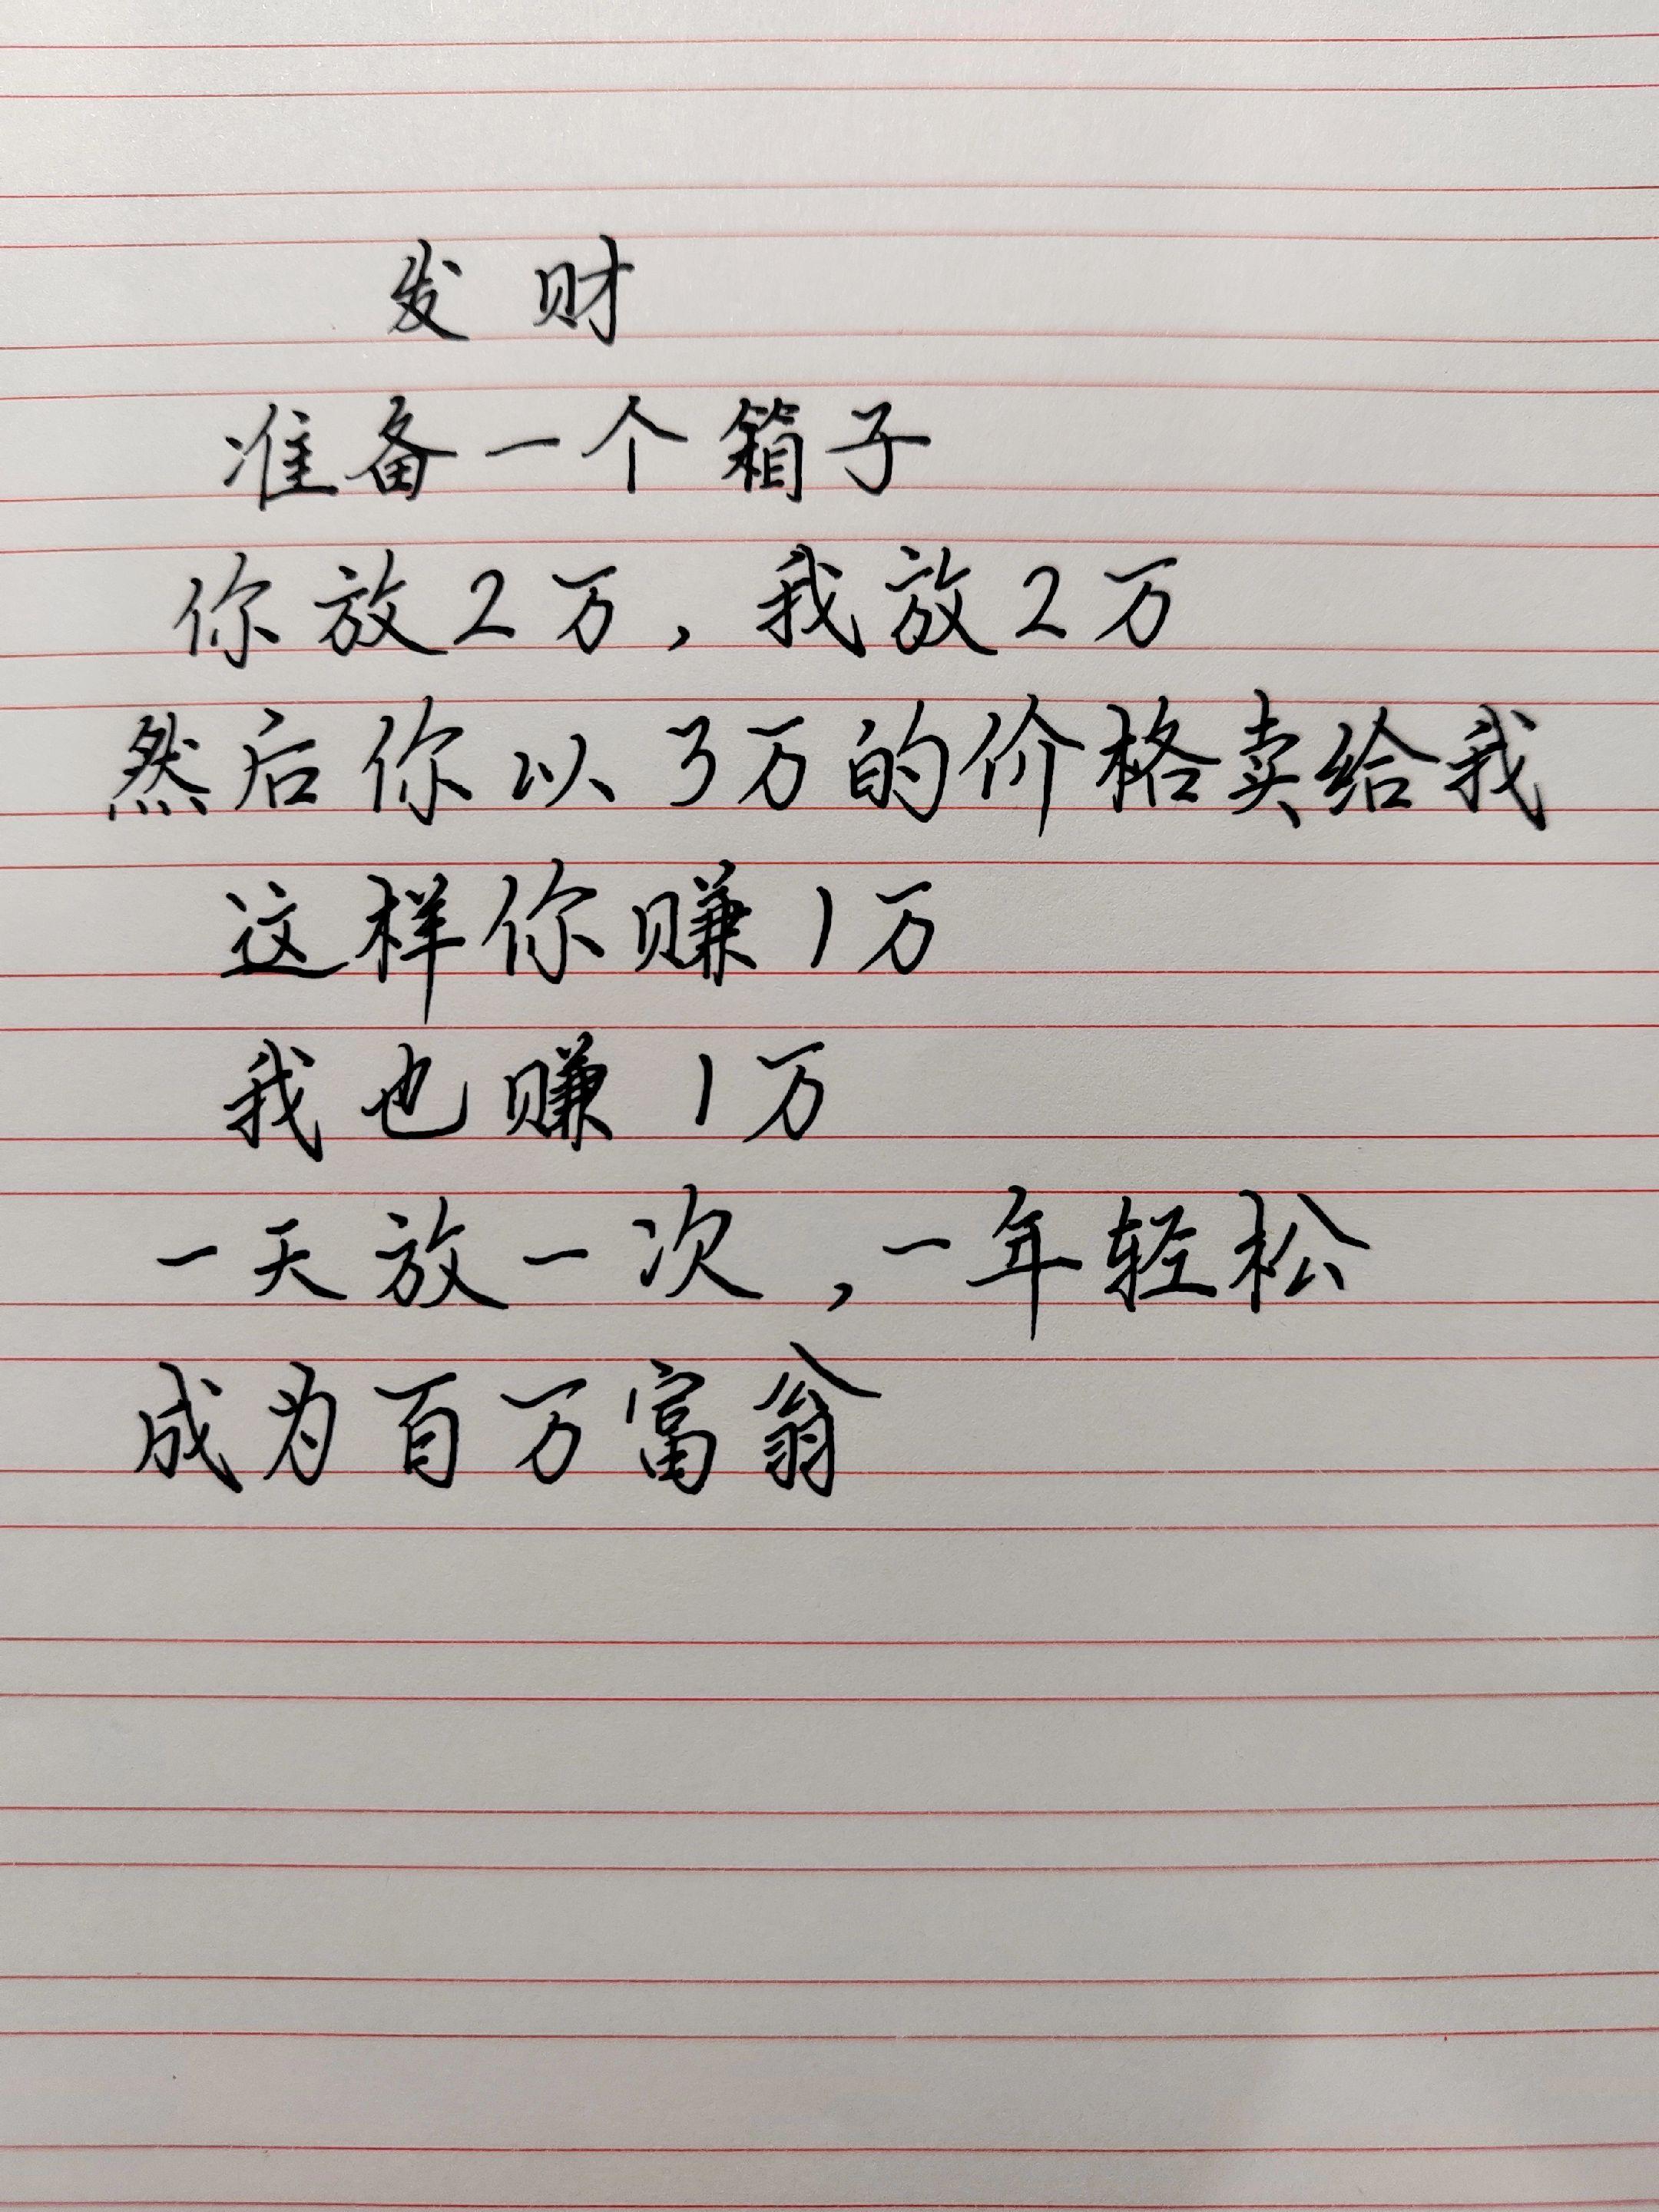 发财
准备一个箱子
你放2万，我放2万
然后你以3万的价格卖给我
这样你赚1万
我也赚1万
一天放一次，一年轻松
成为百万富翁